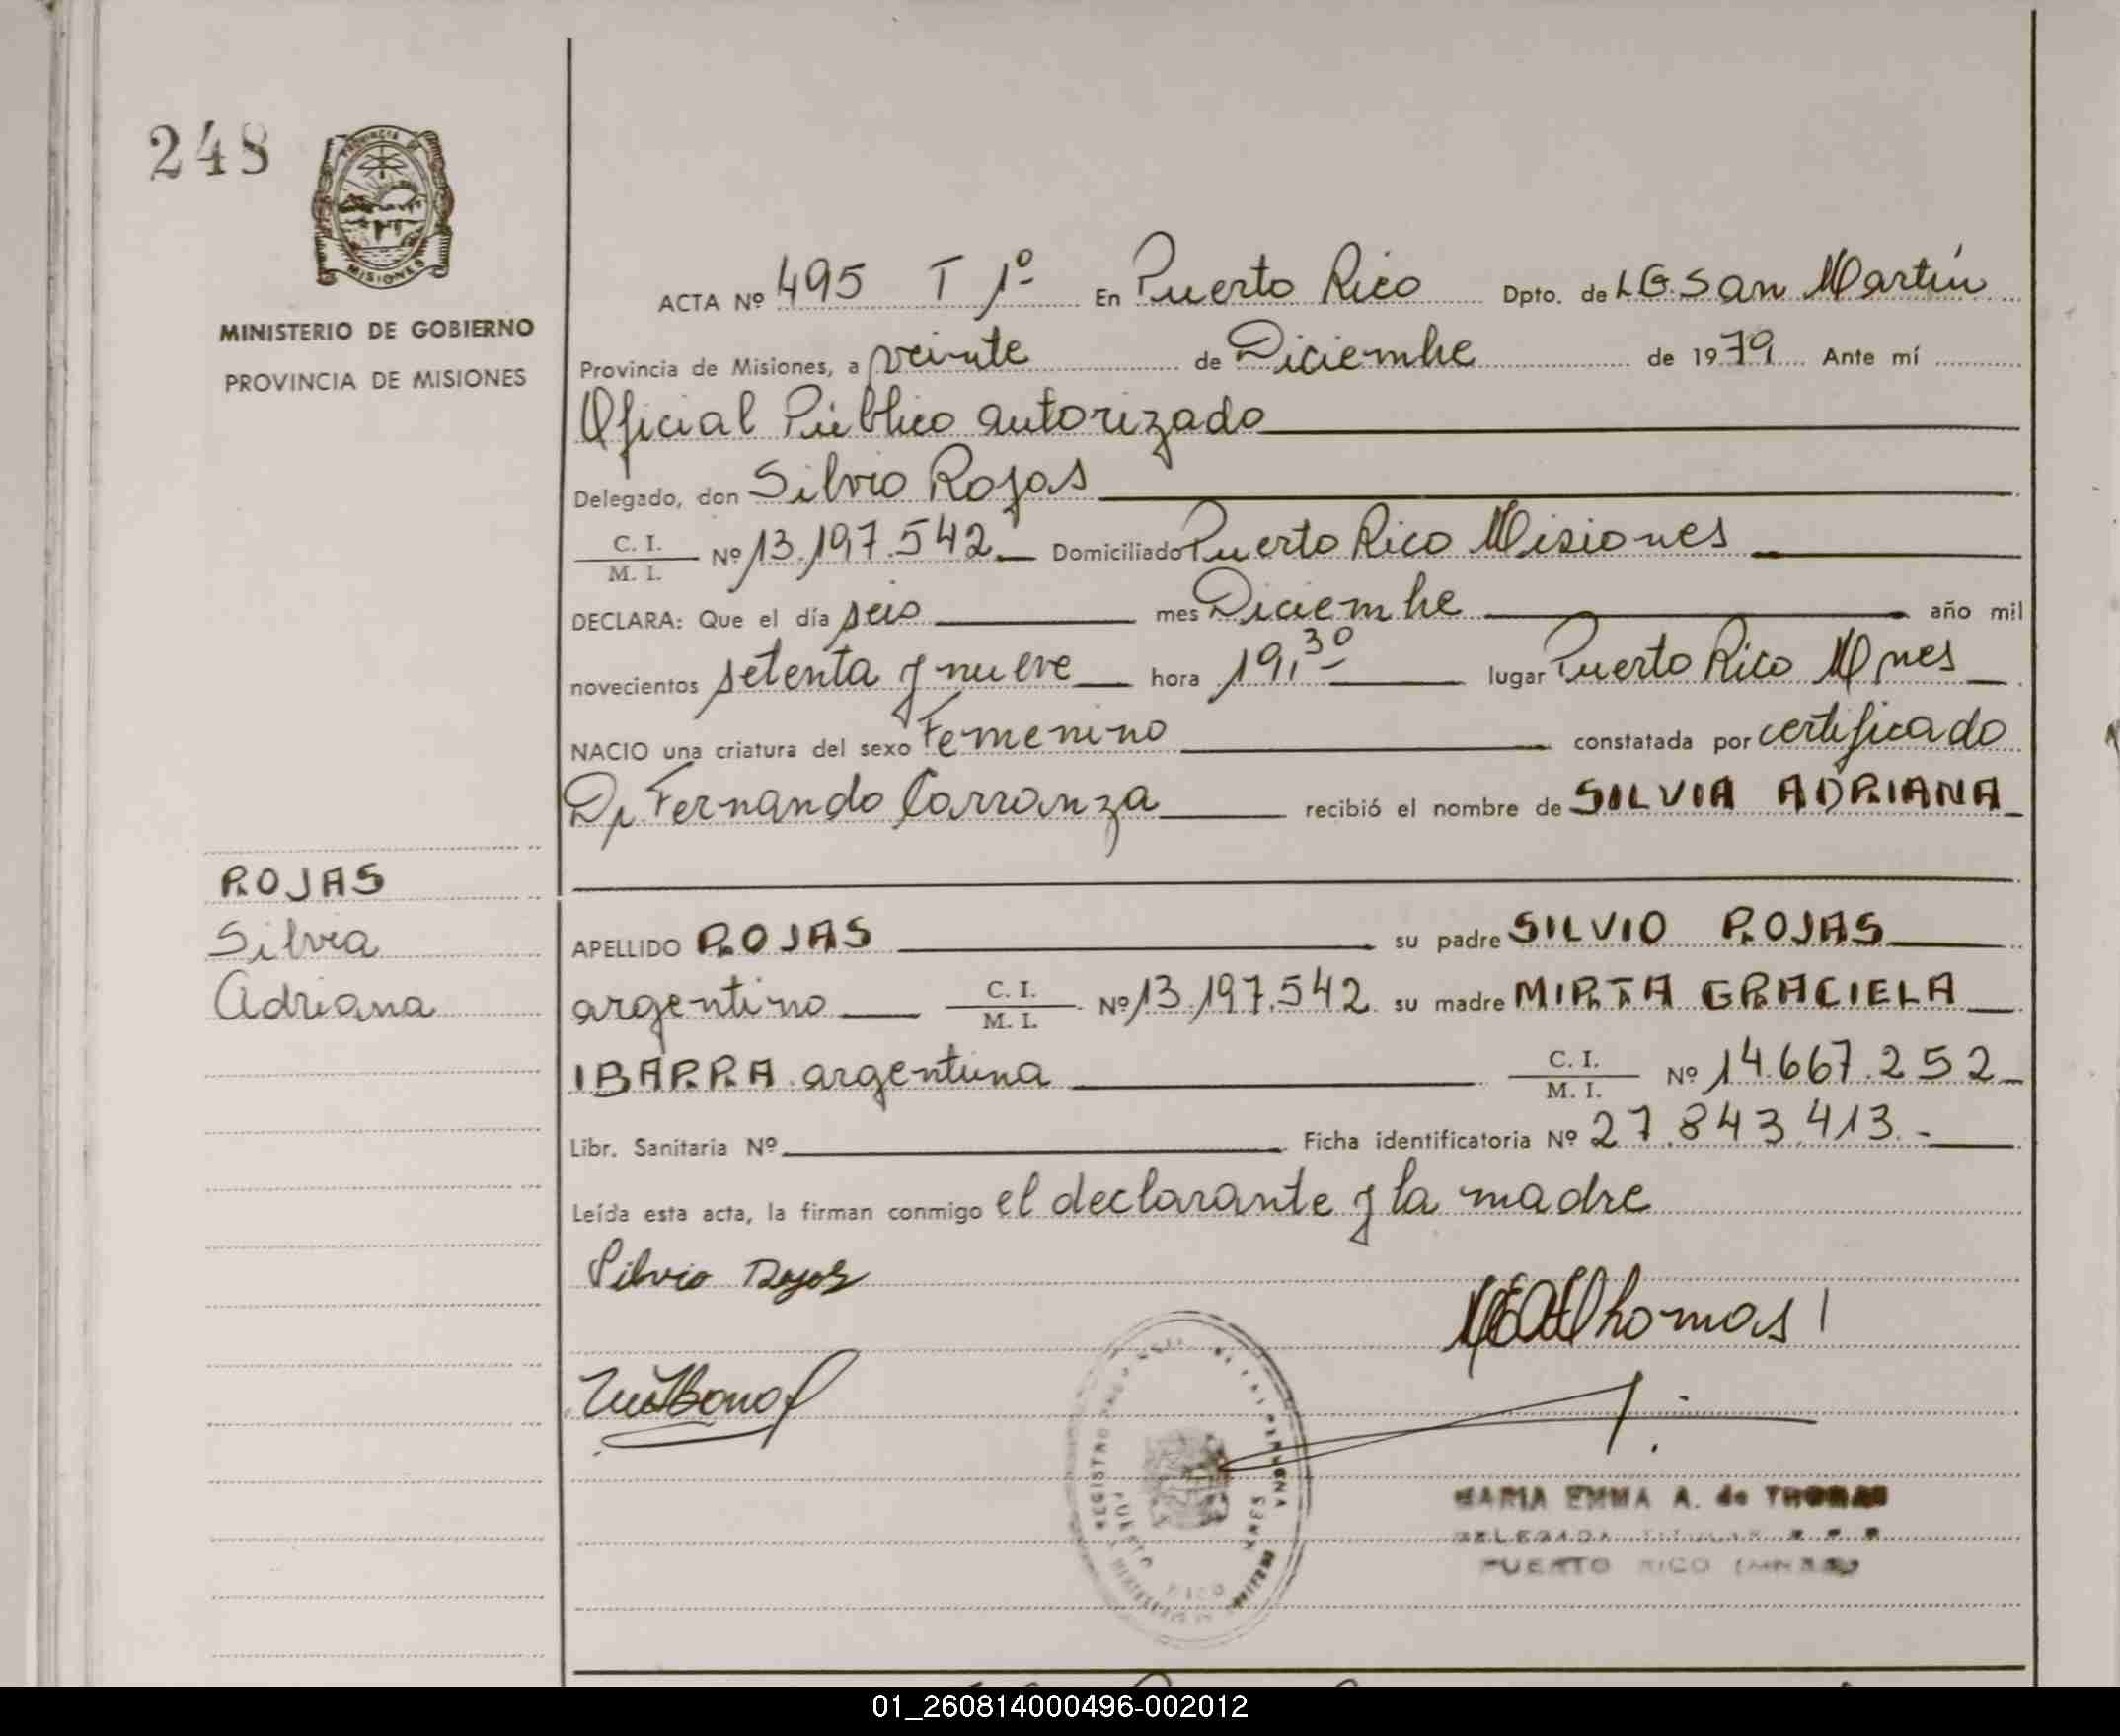 248
PROVINCIA DE
MISIONES
MINISTERIO DE GOBIERNO
PROVINCIA DE MISIONES
ACTA Nº 495 T 1º En Puerto Rico Dpto. de L G. San Martín
Provincia de Misiones, a veinte de Diciembre de 1979 Ante mí
Oficial Público autorizado
Delegado, don Silvio Rojas
C. I. / M. I. Nº 13.197.542 Domiciliado Puerto Rico Misiones
DECLARA: Que el día seis mes Diciembre año mil
novecientos setenta y nueve hora 19,30 lugar Puerto Rico Mnes
NACIO una criatura del sexo Femenino constatada por certificado
Dr Fernando Carranza recibió el nombre de SILVIA ADRIANA
ROJAS
Silvia
Adriana
APELLIDO ROJAS su padre SILVIO ROJAS
argentino C. I. / M. I. Nº 13.197.542 su madre MIRTA GRACIELA
IBARRA argentina C. I. / M. I. Nº 14.667.252
Libr. Sanitaria Nº Ficha identificatoria Nº 27.843.413.-
Leída esta acta, la firman conmigo el declarante y la madre
Silvio Rojas
Thomas
REGISTRO DE LAS PERSONAS
PUERTO RICO MNES
MARIA EMMA A. de THOMAS
DELEGADA TITULAR
PUERTO RICO (MNES)
01_260814000496-002012